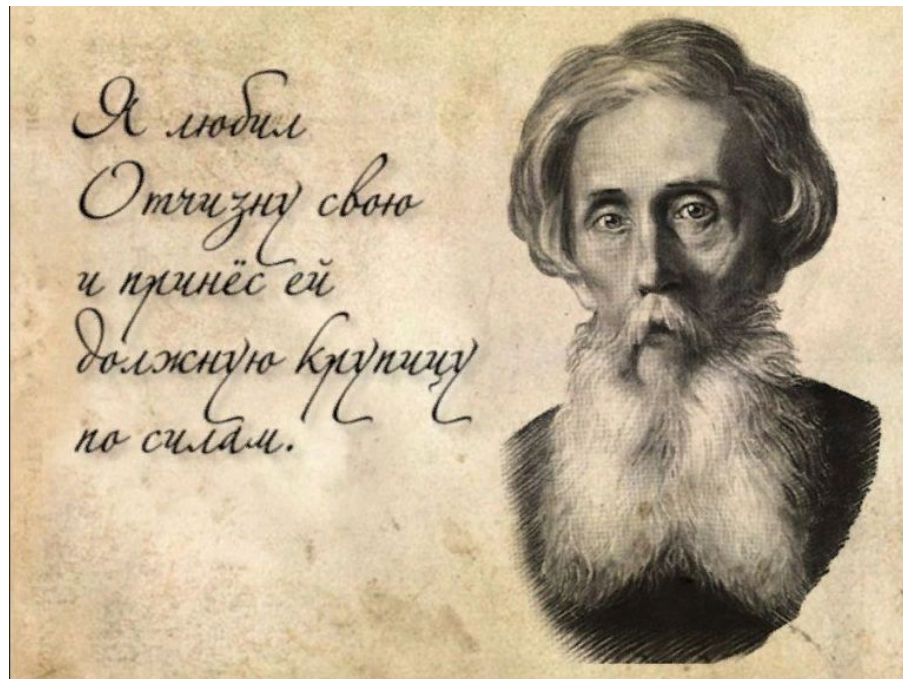 Я любил
Отчизну свою
и принёс ей
должную крупицу
по силам.